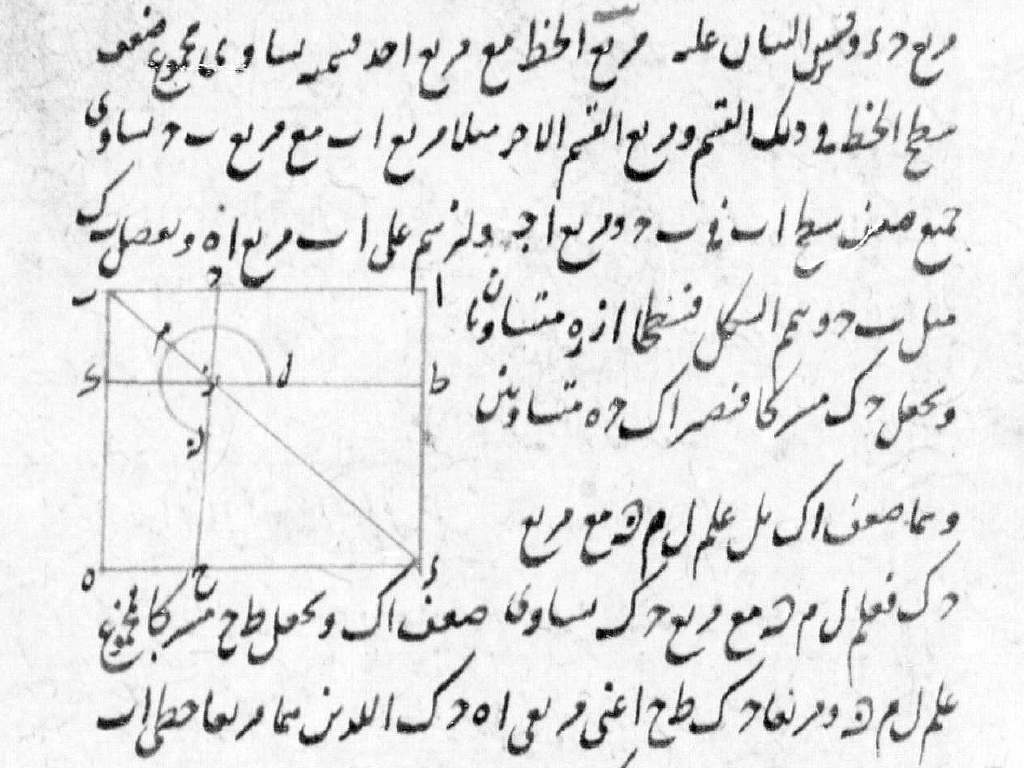 مربع د ء وقس البيان عليه مربع الخط مع مربع احد قسميه يساوي مجموع ضعف
سطح الخط في ذلك القسم ومربع القسم الاخر مثلا مربع ا ب مع مربع ب ح يساوي
جميع ضعف سطح ا ب في ب ح ومربع ا ح ولنرسم على ا ب مربع ا ه ونفصل ب ك
مثل ب ح ونتم الشكل فسطحا ا ز ز ه متساويان
ونجعل ح ك مشتركا فنصير ا ك ح ه متساويين
وهما ضعف ا ك بل علم ل م ن مع مربع
ح ك فعلم ل م ن مع مربع ح ك يساوي ضعف ا ك ونجعل ط ح مشتركا فمجموع
علم ل م ن ومربعا ح ك ط ح اعني مربعي ا ه ح ك اللذين هما مربعا خطي ا ب